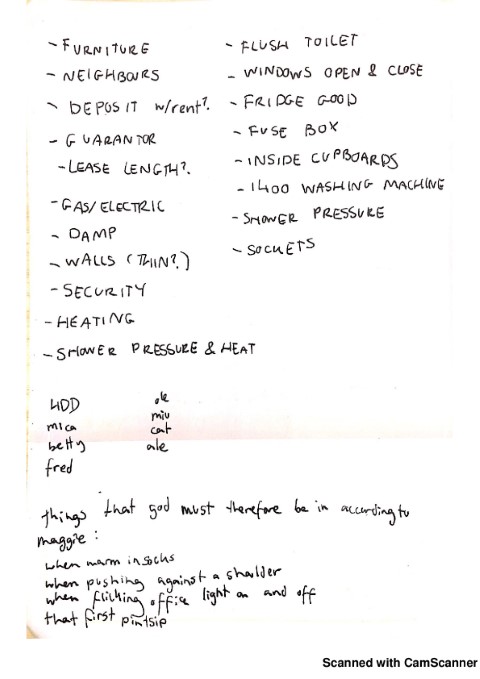 - FURNITURE
- NEIGHBOURS
- DEPOSIT w/rent?
- GUARANTOR
- LEASE LENGTH?
- GAS/ELECTRIC
- DAMP
- WALLS (THIN?)
- SECURITY
- HEATING
- SHOWER PRESSURE & HEAT
- FLUSH TOILET
- WINDOWS OPEN & CLOSE
- FRIDGE GOOD
- FUSE BOX
- INSIDE CUPBOARDS
- 1400 WASHING MACHINE
- SHOWER PRESSURE
- SOCKETS
mica
betty
fred
ole
miu
cat
ale
things that god must therefore be in according to
maggie:
when warm in socks
when pushing against a shoulder
when flicking office light on and off
that first pint sip
Scanned with CamScanner